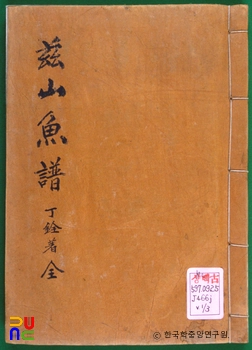 茲山魚譜
丁銓著 全
古
597.0925
J466j
v.1/3
ⓒ 한국학중앙연구원